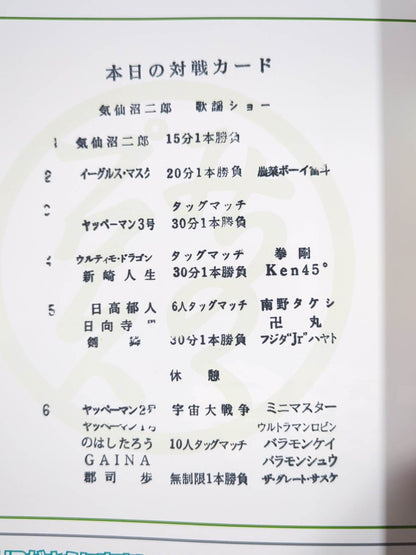 本日の対戦カード
気仙沼二郎 歌謡ショー
1 気仙沼二郎 15分1本勝負
2 イーグルス・マスク 20分1本勝負 農業ボーイ
3 タッグマッチ
ヤッペーマン3号 30分1本勝負
4 ウルティモ・ドラゴン タッグマッチ 拳剛
新崎人生 30分1本勝負 Ken45°
5 日高郁人 6人タッグマッチ 南野タケシ
日向寺 卍丸
剣 30分1本勝負 フジタ"Jr"ハヤト
休憩
6 ヤッペーマン2号 宇宙大戦争 ミニマスター
ヤッペーマン1号 ウルトラマンロビン
のはしたろう 10人タッグマッチ バラモンケイ
GAINA バラモンシュウ
郡司歩 無制限1本勝負 ザ・グレート・サスケ